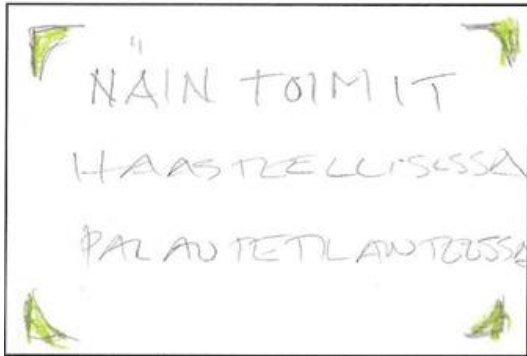 NÄIN TOIMIT
HAASTEELLISESSA
PALAUTETILANTEESSA